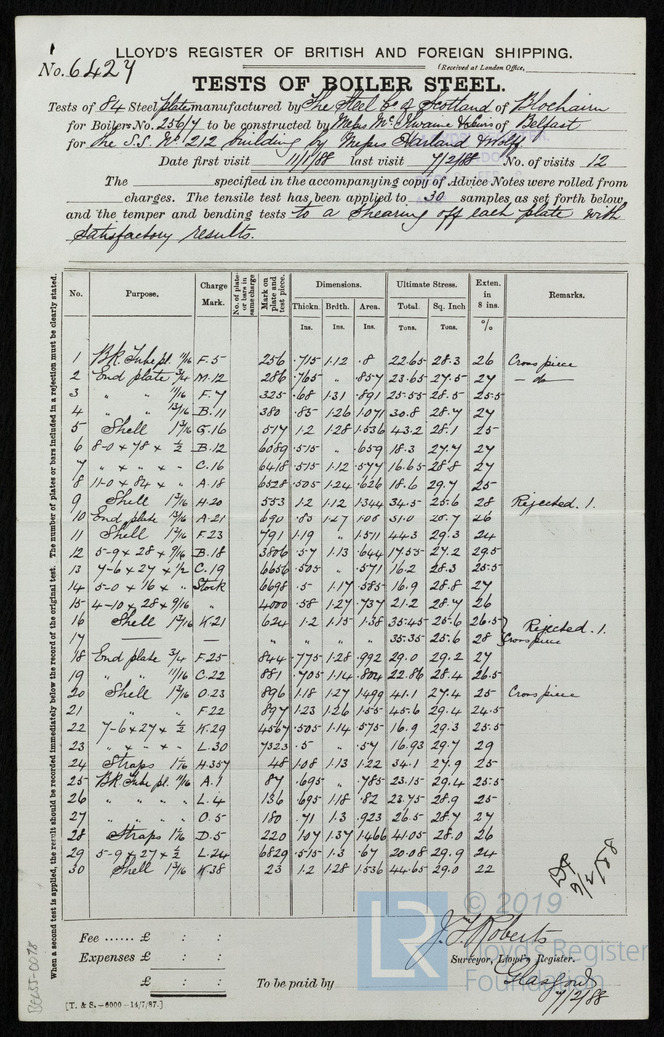 LLOYD'S REGISTER OF BRITISH AND FOREIGN SHIPPING.
No. 6427 (Received at London Office,
TESTS OF BOILER STEEL.
Tests of 84 Steel plates manufactured by The Steel Co of Scotland of Blochairn
for Boilers No. 256/7 to be constructed by Messrs McIlwaine & Lewis of Belfast
for the S.S. No. 212 building by Messrs Harland & Wolff
Date first visit 11/1/88 last visit 7/2/88 No. of visits 12
The specified in the accompanying copy of Advice Notes were rolled from
charges. The tensile test has been applied to 30 samples as set forth below
and the temper and bending tests to a shearing off each plate with
satisfactory results.
No. Purpose. Charge Mark. No. of plates or bars in same charge Mark on plate and test piece. Dimensions. Ultimate Stress. Exten. in 8 ins. Remarks.
Thickn. Brdth. Area. Total. Sq. Inch
Ins. Ins. Ins. Tons. Tons. %
1 BK. Tube pl. 11/16 F.5 256 .715 1.12 .8 22.65 28.3 26 Cross piece
2 End plate 3/4 M.12 286 .765 " .857 23.65 27.5 27 — do —
3 " " 11/16 F.7 325 .68 1.31 .891 25.55 28.5 25.5
4 " " 13/16 B.11 380 .85 1.26 1.071 30.8 28.7 27
5 Shell 1 3/16 G.16 517 1.2 1.28 1.536 43.2 28.1 25
6 8-0 x 78 x 1/2 B.12 6089 .515 " .659 18.3 27.7 27
7 " x " x " C.16 6418 .515 1.12 .577 16.65 28.8 27
8 11-0 x 84 x " A.18 6528 .505 1.24 .626 18.6 29.7 25
9 Shell 1 3/16 H.20 553 1.2 1.12 1.344 34.5 25.6 28 Rejected. 1.
10 End plate 13/16 A.21 690 .85 1.27 1.08 31.0 28.7 26
11 Shell 1 3/16 F.23 791 1.19 " 1.511 44.3 29.3 24
12 5-9 x 28 x 9/16 B.18 3806 .57 1.13 .644 17.55 27.2 29.5
13 7-6 x 27 x 1/2 C.19 6656 .505 " .571 16.2 28.3 25.5
14 5-0 x 16 x " Stock 6698 .5 1.17 .585 16.9 28.8 27
15 4-10 x 28 x 9/16 " 4000 .58 1.27 .737 21.2 28.7 26
16 Shell 1 3/16 K.21 624 1.2 1.15 1.38 35.45 25.6 26.5 Rejected. 1.
17 — — " " " " 35.35 25.6 28 Cross piece
18 End plate 3/4 F.25 844 .775 1.28 .992 29.0 29.2 27
19 " " 11/16 C.22 881 .705 1.14 .804 22.86 28.4 26.5
20 Shell 1 3/16 O.23 896 1.18 1.27 1.499 41.1 27.4 25 Cross piece
21 " " F.22 897 1.23 1.26 1.55 45.6 29.4 24.5
22 7-6 x 27 x 1/2 K.29 4567 .505 1.14 .575 16.9 29.3 25.5
23 " x " x " L.30 7323 .5 " .57 16.93 29.7 29
24 Straps 1 1/16 H.357 48 1.08 1.13 1.22 34.1 27.9 25
25 BK. Tube pl. 11/16 A.1 87 .695 " .785 23.15 29.4 25.5
26 " " " " L.4 136 .695 1.18 .82 23.75 28.9 25
27 " " " " O.5 180 .71 1.3 .923 26.5 28.7 27
28 Straps 1 1/16 D.5 220 1.07 1.37 1.466 41.05 28.0 26
29 5-9 x 27 x 1/2 L.24 6829 .515 1.3 .67 20.08 29.9 24
30 Shell 1 3/16 K.38 23 1.2 1.28 1.536 44.65 29.0 22
9/2/88
When a second test is applied, the result should be recorded immediately below the record of the original test. The number of plates or bars included in a rejection must be clearly stated.
Fee ...... £ : :
Expenses £ : :
£ : :
To be paid by
J. T. Roberts
Surveyor, Lloyd's Register.
Glasgow
7/2/88
[T. & S.—6000—14/7/87.]
© 2019
LR
Lloyd's Register
Foundation